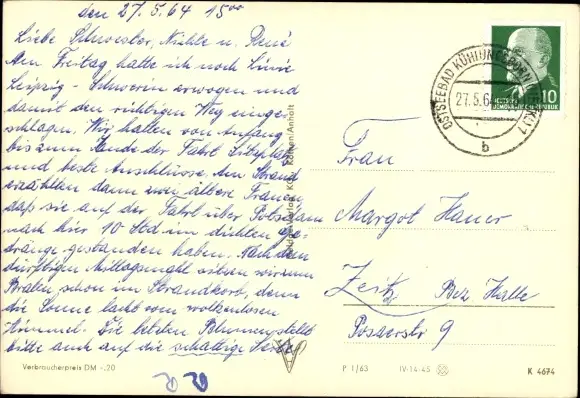 den 27.5.64 15⁰⁰
Liebe Schwester, Nichte u. René
Am Freitag hatte ich noch Linie
Leipzig - Schwerin erwogen und
damit den richtigen Weg einge-
schlagen. Wir hatten von Anfang
bis zum Ende der Fahrt Sitzplatz
und beste Anschlüsse. Am Strand
erzählten dann zwei ältere Frauen,
daß sie auf der Fahrt über Potsdam
nach hier 10 Std im dichten Ge-
dränge gestanden haben. Nach dem
dürftigen Mittagsmahl sitzen wir zum
Braten schon im Strandkorb, denn
die Sonne lacht vom wolkenlosen
Himmel. Die letzten Blumen stellt
bitte auch auf die schattige
Verbraucherpreis DM -.20
Köthen/Anhalt
OSTSEEBAD KÜHLUNGSBORN
27.5.6
b
10
DEUTSCHE
DEMOKRATISCHE REPUBLIK
Frau
Margot Hauer
Zeitz Bez Halle
Posaerstr 9
P 1/63 IV-14-45 K 4674